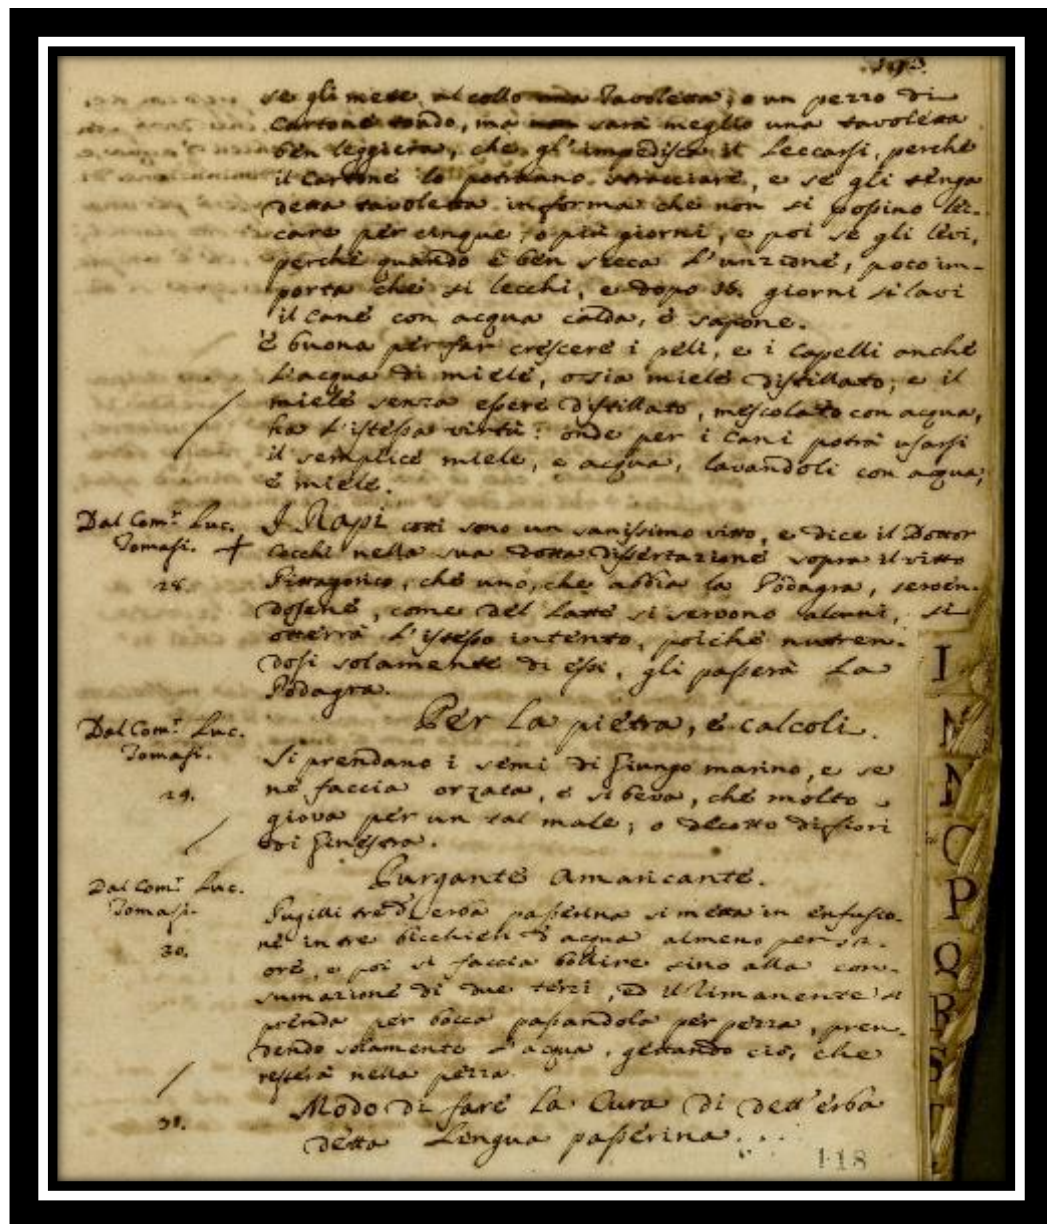 se gli mette al collo una Tavoletta, o un pezzo di
Cartone tondo, ma non sarà meglio una tavoletta
ben leggiera, che gl'impedisca il Leccarsi, perché
il Cartone lo potriano stracciare, e se gli tenga
detta tavoletta in forma che non si possino lec-
care per cinque, o più giorni, e poi se gli levi,
perché quando è ben secca L'unzione, poco im-
porta che si lecchi, e dopo 16. giorni si lavi
il Cane con acqua calda, e sapone.
È buona per far crescere i peli, e i Capelli anche
L'acqua di miele, ossia miele distillato; e il
miele senza essere distillato, mescolato con acqua,
ha L'istessa virtù: onde per i Cani potrà usarsi
il semplice miele, e acqua, lavandoli con acqua,
e miele.
Dal Com.r Luc.
Tomasi. +
28.
I Rapi cotti sono un sanissimo vitto, e dice il Dottor
Cocchi nella sua dotta dissertazione sopra il vitto
Pittagorico, che uno, che abbia la Podagra, serven-
dosene, come del Latte si servono alcuni, si
otterrà L'istesso intento, poiché nutren-
dosi solamente di essi, gli passerà La
Podagra.
Dal Com.r Luc.
Tomasi.
29.
Per La pietra, e calcoli.
Si prendano i semi di Giungo marino, e se
ne faccia orzata, e si beva, che molto
giova per un tal male; o decotto di fiori
di Ginestra.
Dal Com.r Luc.
Tomasi.
30.
Purgante Amaricante.
Pugilli tre d'erba passerina si metta in enfusio-
ne in tre bicchieri d'acqua almeno per
ore, e poi si faccia bollire sino alla con-
sumazione di due terzi, ed il rimanente si
prenda per bocca passandola per pezza, pren-
dendo solamente L'acqua, gettando ciò, che
resterà nella pezza.
31.
Modo di fare La Cura di dett'erba
detta Lengua passerina...
118
I
M
N
O
P
Q
R
S
T